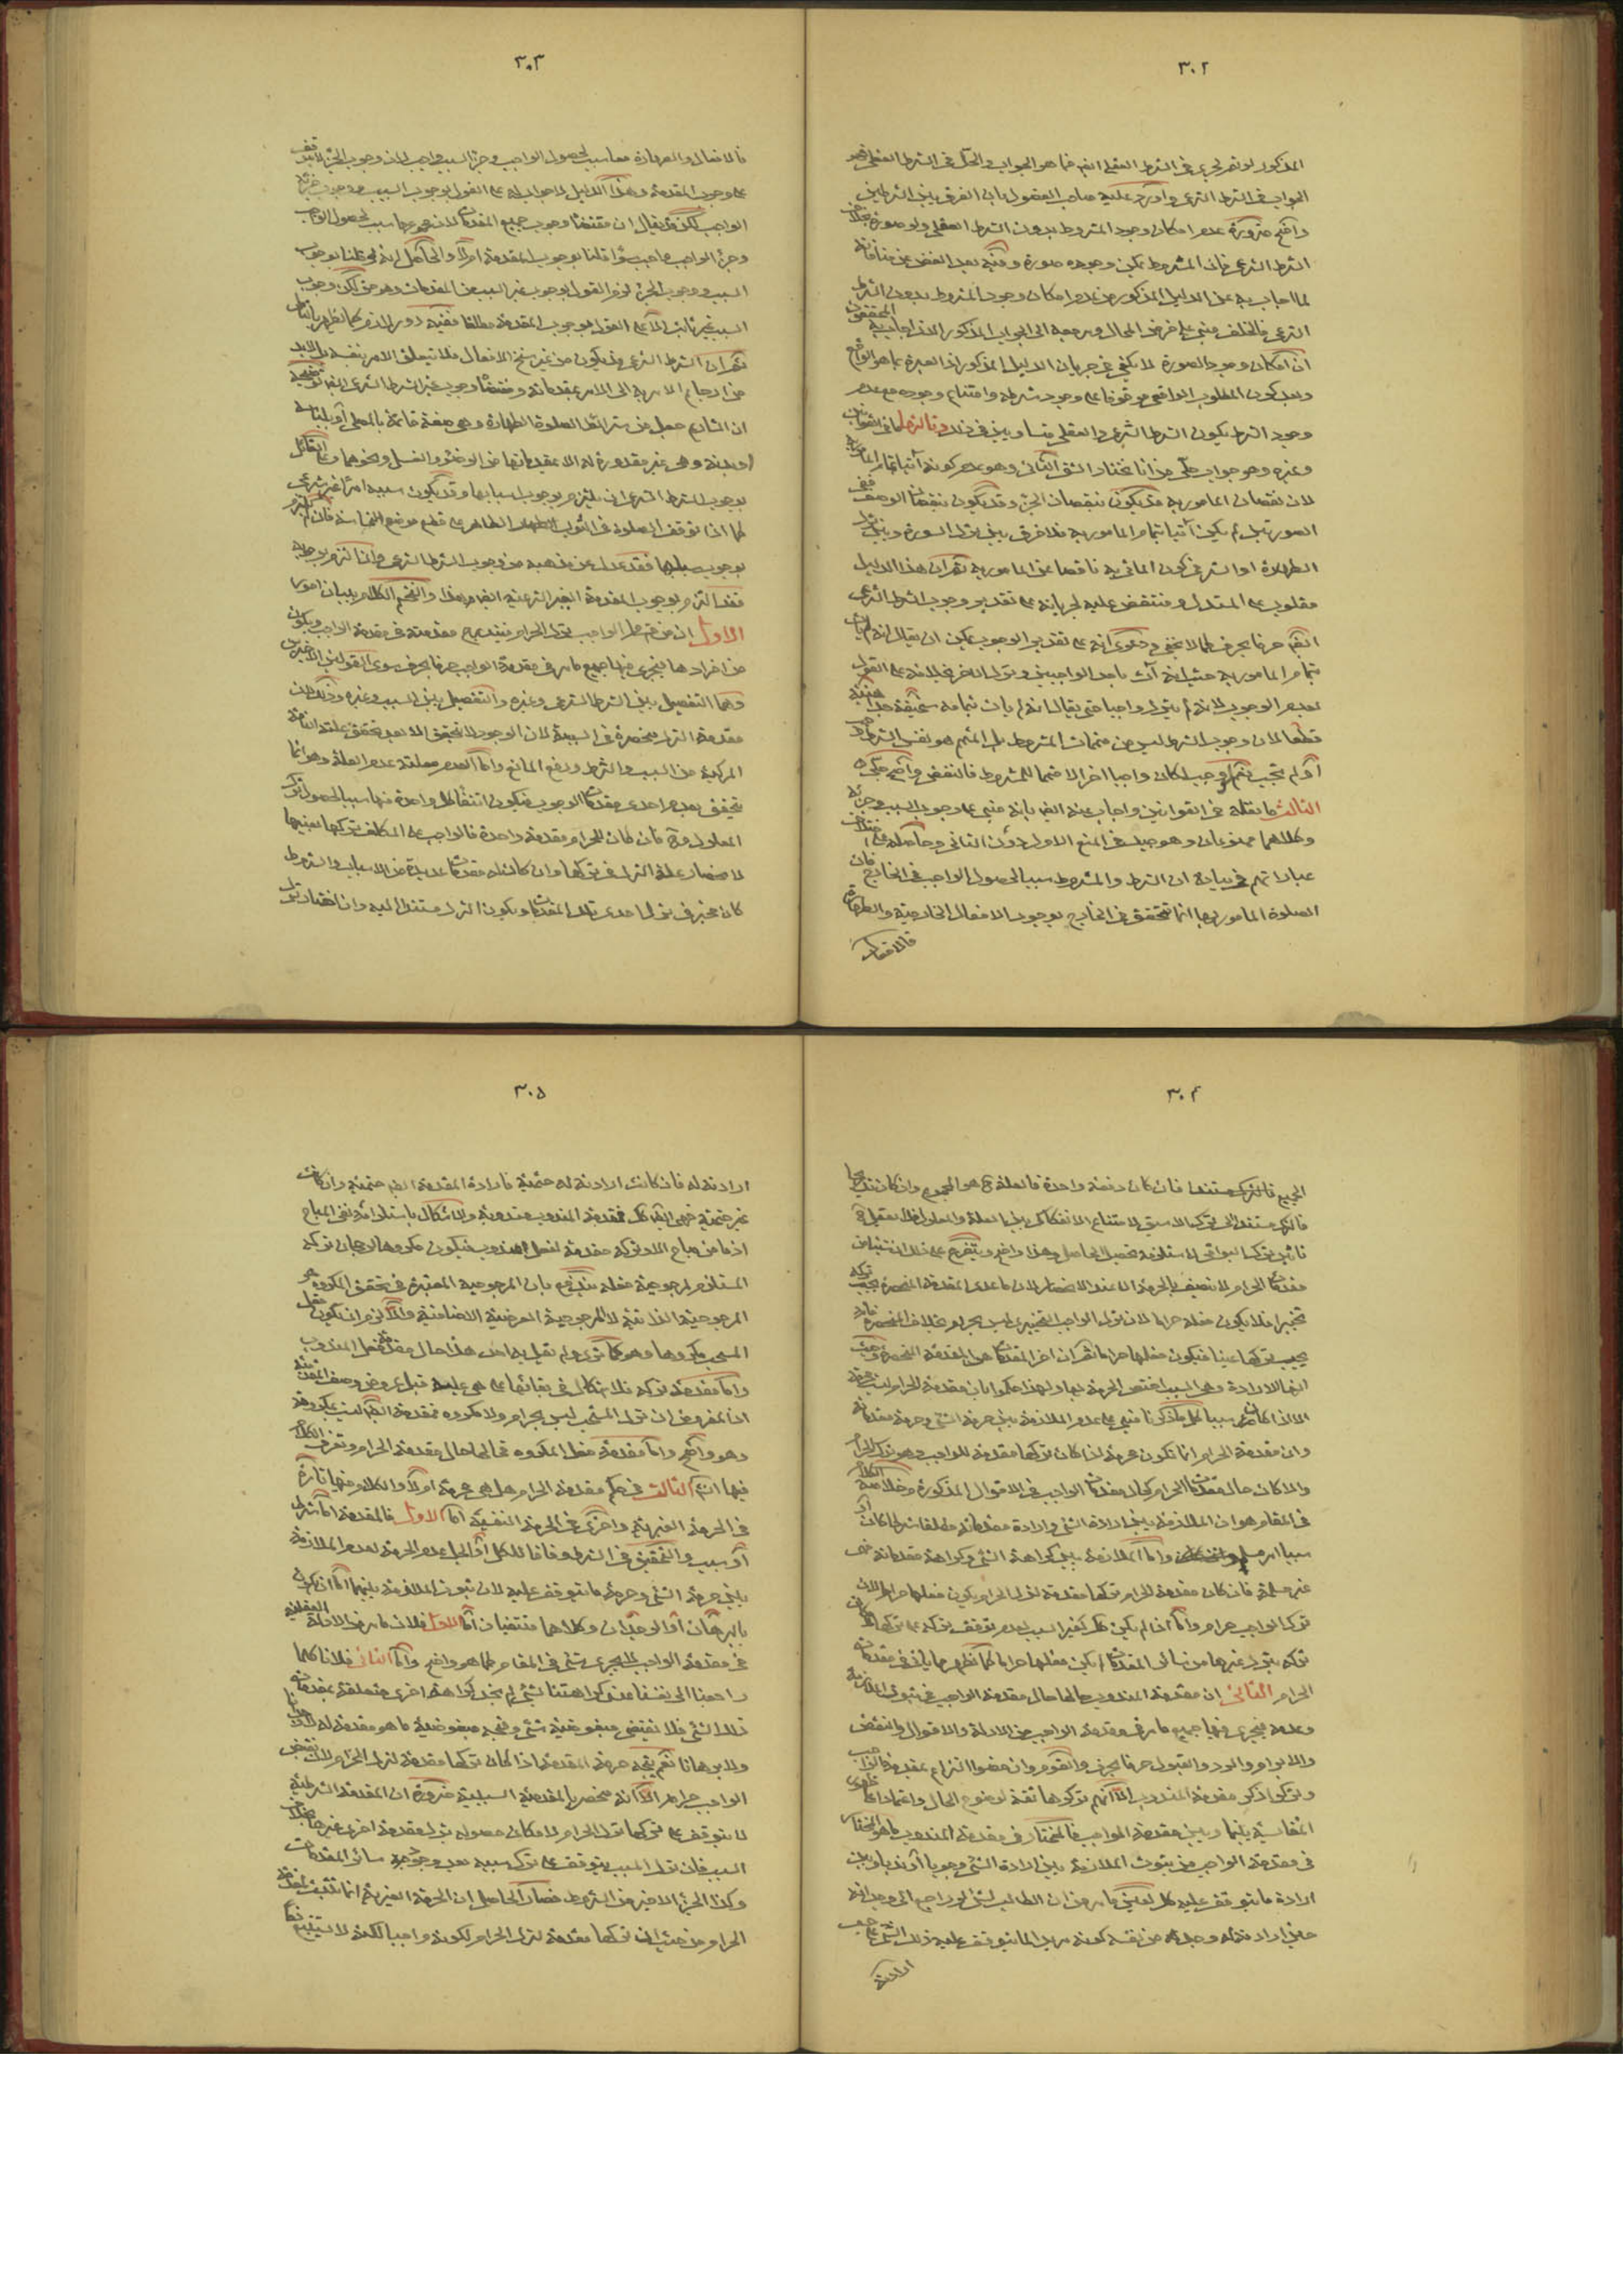 ٣٠٢
المذكور لو تم لجرى في الشرط العقلي ايضا فما هو الجواب والحل في الشرط العقلي فهو
الجواب في الشرط الشرعي واورد عليه صاحب الفصول بان الفرق بين الشرطين
واضح ضرورة عدم امكان وجود المشروط بدون الشرط العقلي ولو صورة بخلاف
الشرط الشرعي فان المشروط يمكن وجوده صورة وفيه بعد الغض عن منافاته
لما اجاب به عن الدليل المذكور من عدم امكان وجود المشروط بدون الشرط
الشرعي فالخلف مبني على فرض المحال ومرجعه الى الجواب المذكور الذي اجاب به المحققون
ان امكان وجود الصورة لا يكفي في جريان الدليل المذكور اذ العبرة بما هو الواقع
وبعد كون المطلوب الواقعي موقوفا على وجود شرطه وامتناع وجوده مع عدم
وجود الشرط يكون الشرط الشرعي والعقلي متساويين في ذلك
وغيره وهو جواب حلي من انا نختار الشق الثاني وهو عدم كونه آتيا بتمام المامور به
لان نقصان المامور به قد يكون بنقصان الجزء وقد يكون بنقصان الوصف
الصورتين لم يكن آتيا بتمام المامور به فلا فرق بين ترك السورة وبين ترك
الطهارة او الستر في كون الماتي به ناقصا عن المامور به ثم ان هذا الدليل
مقلوب على المستدل ومنتقض عليه لجريانه على تقدير وجوب الشرط الشرعي
ايضا حرفا بحرف كما لا يخفى ودعوى انه على تقدير الوجوب يمكن ان يقال انه لم يات
بتمام المامور به حيث انه آت باحد الواجبين وترك الاخر بخلافه على القول
بعدم الوجوب لانه لم يترك واجبا حتى يقال انه لم يات بتمامه سخيفة جدا
قطعا لان وجوب الشرط ليس من متممات المشروط بل المتمم هو نفس الشرط
او لم يجب نعم لو وجب لكان واجبا اخر لا متمما للمشروط فالنقض واضح
الثالث ما نقله في القوانين واجاب عنه ايضا بانه مبني على وجوب السبب وجزئه
وكلاهما ممنوعان وهو صريح في المنع الاول دون الثاني وحاصله على اختلاف
عباراتهم في بيانه ان الشرط والمشروط سبب لحصول الواجب في الخارج فان
الصلوة المامور بها انما تتحقق في الخارج بوجود الافعال الخارجية والطهارة
فالافعال
٣٠٣
فالافعال والطهارة معا سبب لحصول الواجب وجزء السبب واجب لان وجوب الجزء لا يتوقف
على وجوب المقدمة وهذا الدليل لا جواب له على القول بوجوب السبب ووجوب جزئه
الواجب لكن قد يقال ان مقتضاه وجوب جميع المقدمات لان مجموعها سبب لحصول الواجب
وجزء الواجب واجب سواء قلنا بوجوب المقدمة ام لا والحاصل انه لو قلنا بوجوب
السبب ووجوب الجزء لزم القول بوجوب غير السبب من المقدمات وهو حق لكن وجوب
السبب غير ثابت الا على القول بوجوب المقدمة مطلقا ففيه دور
ثم ان الشرط الشرعي قد يكون من غير سنخ الافعال فلا تيعلق الامر بنفسه بل لا بد
من ارجاع الامر به الى الامر بمقدماته ومقتضاه وجوب غير الشرط الشرعي ايضا توضيحه
ان الشارع جعل من شرائط الصلوة الطهارة وهي صفة قائمة بالمصلي او بلباسه
او بدنه وهي غير مقدورة له الا بمقدماتها من الوضوء والغسل ونحوهما وعلى القائل
بوجوب الشرط الشرعي ان يلتزم بوجوب اسبابها وقد يكون سببه امرا غير شرعي
كما اذا توقف الصلوة في الثوب الطاهر على قطع موضع النجاسة فان لم يلتزم
بوجوب سببها فقد عدل عن مذهبه من وجوب الشرط الشرعي وان التزم بوجوبه
فقد التزم بوجوب المقدمة الغير الشرعية ايضا هذا ولنختم الكلام ببيان امور
الاول ان من جملة الواجب ترك الحرام فيندرج مقدمته في مقدمة الواجب ويكون
من افرادها فيجري فيها جميع ما مر في مقدمة الواجب حرفا بحرف سوى القولين الاخيرين
وهما التفصيل بين الشرط الشرعي وغيره والتفصيل بين السبب وغيره وذلك لان
مقدمة الترك منحصرة في السببية لان الوجود لا يتحقق الا بعد تحقق علته التامة
المركبة من السبب والشرط ورفع المانع واما العدم فعلته عدم العلة وهو انما
يتحقق بعدم احدى مقدمات الوجود فيكون انتفاء كل واحدة منها سببا لحصول ترك
المعلول فان كان للحرام مقدمة واحدة فالواجب على المكلف تركها بعينها
لانحصار علة الترك في تركها وان كانت له مقدمات عديدة من الاسباب والشروط
كان مخيرا في ترك احدى تلك المقدمات ويكون الترك مستندا اليه وان اختار ترك
٣٠٤
الجميع فالترك مستند فان كان دفعة واحدة فالعلة ح هو المجموع وان كان تدريجا
فالترك مستند الى ترك الاسبق لامتناع الانفكاك بين العلة والمعلول فلا يعقل ح
تاثير ترك البواقي لاستلزامه تحصيل الحاصل وهذا واضح ويتفرع على ذلك ان شيئا من
مقدمات الحرام لا يتصف بالحرمة الا عند الانحصار لان ما عدى المقدمة المنحصرة يجب تركه
تخييرا فلا يكون فعله حراما لان ترك الواجب التخييري ليس بحرام بخلاف المنحصرة فانه
يجب تركها عينا فيكون فعلها حراما ثم ان اخر المقدمات هو المقدمة المنحصرة
انها الارادة وهي السبب اختص الحرمة بها ولهذا حكموا بان مقدمة الحرام ليست محرمة
الا اذا كانت سببا ما ذكرنا مبني على عدم الملازمة بين حرمة الشيء وحرمة مقدماته
وان مقدمة الحرام انما تكون محرمة اذا كان تركها مقدمة للواجب وهو ترك الحرام
والا كان حال مقدمات الحرام كحال مقدمات الواجب في الاقوال المذكورة وخلاصة الكلام
في المقام هو ان الملازمة بين ارادة الشيء وارادة مقدماته مطلقا شرطا كان او
سببا امر مسلم واما الملازمة بين كراهة الشيء وكراهة مقدماته فهي
غير مسلمة فان كان مقدمة للحرام تركها مقدمة لترك الحرام يكون فعلها حراما لان
ترك الواجب حرام واما اذا لم يكن كك كغير السبب لعدم توقف تركه على تركها
تركه بترك غيرها من سائر المقدمات لم يكن فعلها حراما كما يظهر مما ياتي في مقدمات
الحرام الثاني ان مقدمة المندوب حالها حال مقدمة الواجب في ثبوت الملازمة
وعدمه فيجري فيها جميع ما مر في مقدمة الواجب من الادلة والاقوال والنقض
والابرام والرد والقبول حرفا بحرف والقوم وان خصوا النزاع بمقدمة الواجب
وتركوا ذكر مقدمة المندوب الا انهم تركوها ثقة لوضوح الحال واعتمادا على
المقايسة بينها وبين مقدمة الواجب فالمختار في مقدمة المندوب ما هو المختار
في مقدمة الواجب من ثبوت الملازمة بين ارادة الشيء وجوبا او ندبا وبين
ارادة ما يتوقف عليه كك لعين ما مر من ان الطالب لشيء لو راجع الى وجدانه
حين ارادته له وجد من نفسه كونه مريدا لما يتوقف عليه ذلك الشيء على حسب
ارادته
٣٠٥
ارادته له فان كانت ارادته له حتمية فارادة المقدمة ايضا حتمية وان كانت
غير حتمية فهي ايضا كك فمقدمة المندوب مندوبة والاشكال باستلزامه نفي المباح
اذ ما من مباح الا وتركه مقدمة لفعل المندوب فيكون مكروها لرجحان تركه
المستلزم لمرجوحية فعله يندفع بان المرجوحية المعتبرة في تحقق المكروه هو
المرجوحية الذاتية لا المرجوحية العرضية الاضافية والا لزم ان يكون فعل
المستحب مكروها وهو كما ترى ولم يقل به احد هذا حال مقدمة فعل المندوب
واما مقدمة تركه فلا اشكال في بقائها على ما هي عليه قبل عروض وصف المقدمية
اذ المفروض ان ترك المستحب ليس بحرام ولا مكروه فمقدمته ايضا ليست بمكروهة
وهو واضح واما مقدمة فعل المكروه فحالها حال مقدمة الحرام وتعرف الكلام
فيها الثالث في حكم مقدمة الحرام هل هي محرمة ام لا والكلام فيها تارة
في الحرمة الغيرية واخرى في الحرمة النفسية اما الاول فالمقدمة اما شرط
او سبب والتحقيق في الشرط وفاقا للكل او الجل عدم الحرمة لعدم الملازمة
بين حرمة الشيء وحرمة ما يتوقف عليه لان ثبوت الملازمة بينهما اما ان يكون
بالبرهان او الوجدان وكلاهما منتفيان اما الاول فلان ما مر من الادلة العقلية
في مقدمة الواجب لا يجري شيء في المقام كما هو واضح واما الثاني فلانا كلما
راجعنا الى نفسنا عند كراهتنا لشيء لم نجد كراهة اخرى متعلقة بمقدمات
ذلك الشيء فلا تقتضي مبغوضية شيء وقبحه مبغوضية ما هو مقدمة له
ولا برهانا نعم يتجه حرمة المقدمة اذا كان تركها مقدمة لترك الحرام لان نقيض
الواجب حرام الا انه منحصر بالمقدمة السببية ضرورة ان المقدمة الشرطية
لا يتوقف على تركها ترك الحرام لامكان حصوله بترك مقدمة اخرى غيرها بخلاف
السبب فان ترك المسبب يتوقف على ترك سببه بعد وجود سائر المقدمات
وكذا الجزء الاخير من الشروط فصار الحاصل ان الحرمة الغيرية انما تثبت لمقدمة
الحرام من حيث ان تركها مقدمة لترك الحرام لكونه واجبا لكنه لا يستتبع